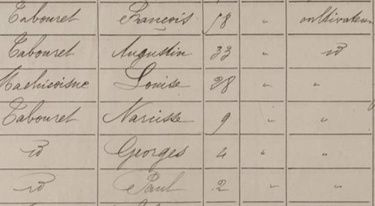 Tabouret François 58 " cultivateur
Tabouret Augustin 33 " id
Louise 28 " "
Tabouret Narcisse 9 " "
id Georges 4 " "
id Paul 2 " "